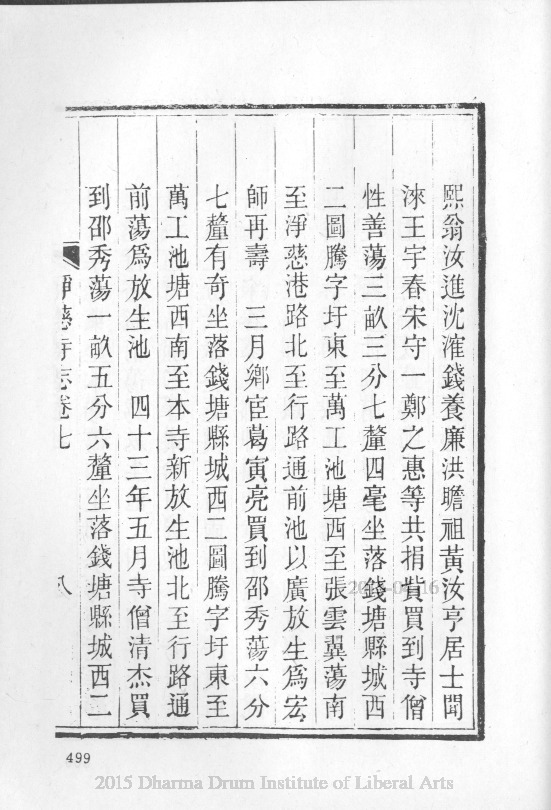 熙翁汝進沈㴶錢養廉洪瞻祖黃汝亨居士聞
淶王宇春宋守一鄭之惠等共捐貲買到寺僧
性善蕩三畝三分七釐四毫坐落錢塘縣城西
二圖騰字圩東至萬工池塘西至張雲翼蕩南
至淨慈港路北至行路通前池以廣放生爲宏
師再壽　三月鄉宦葛寅亮買到邵秀蕩六分
七釐有奇坐落錢塘縣城西二圖騰字圩東至
萬工池塘西南至本寺新放生池北至行路通
前蕩爲放生池　四十三年五月寺僧清杰買
到邵秀蕩一畝五分六釐坐落錢塘縣城西二
淨慈寺志卷七
八
499
2015 Dharma Drum Institute of Liberal Arts